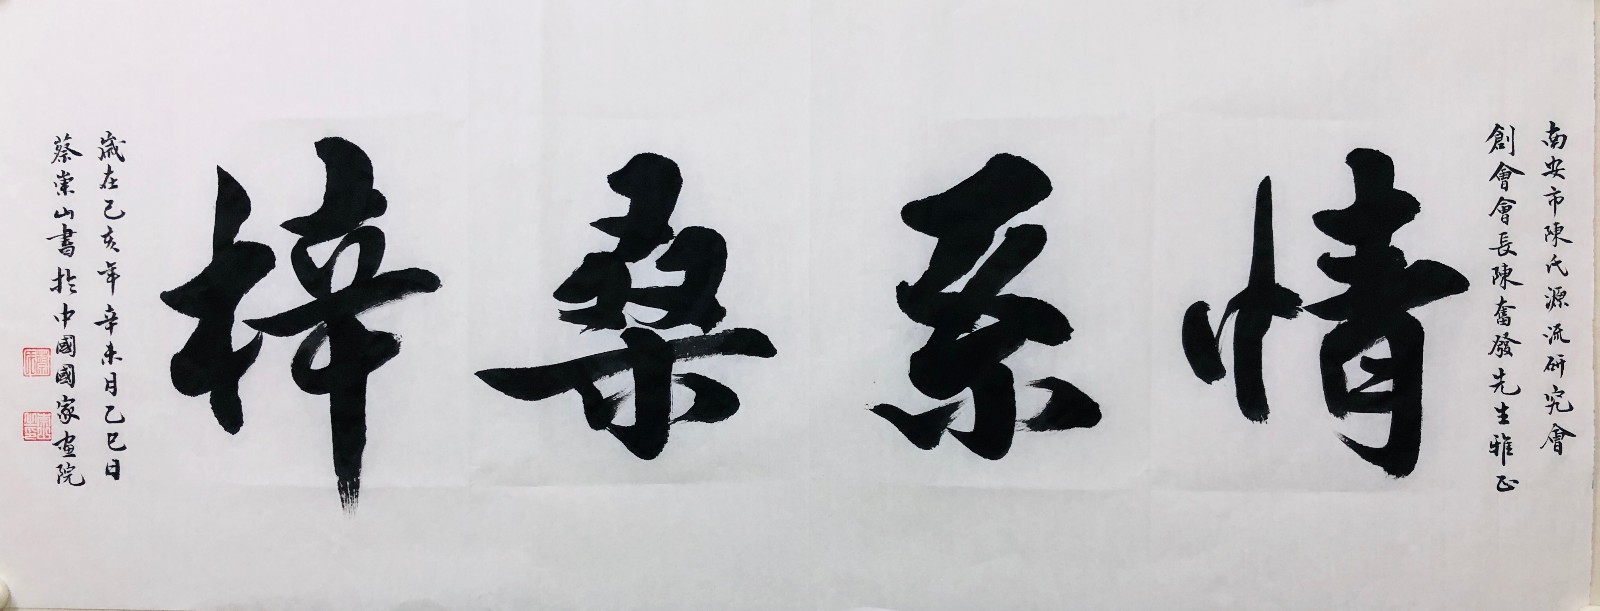 南安市陳氏源流研究會
創會會長陳奮發先生雅正
情系桑梓
歲在己亥年辛未月乙巳日
蔡崇山書於中國國家画院